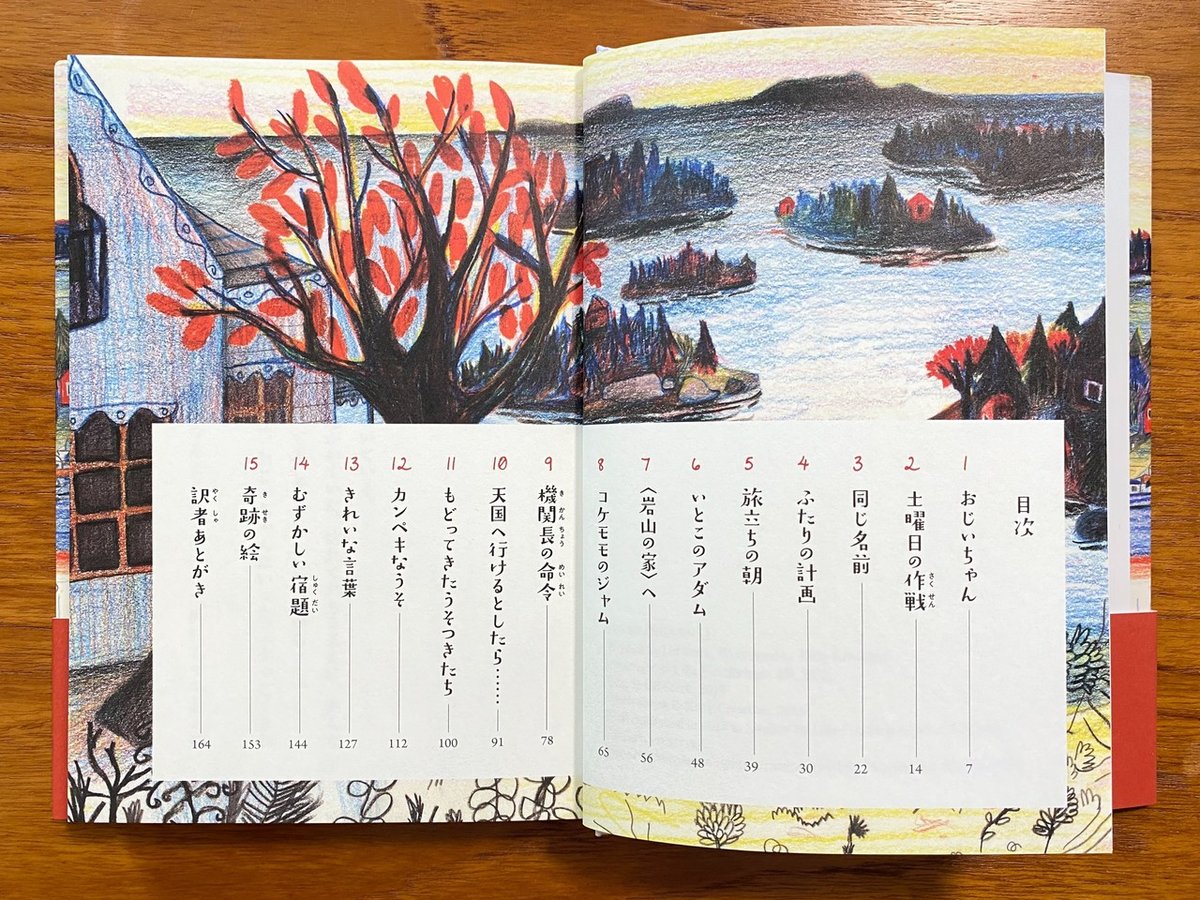 目次
1 おじいちゃん 7
2 土曜日の作戦 さくせん 14
3 同じ名前 22
4 ふたりの計画 30
5 旅立ちの朝 39
6 いとこのアダム 48
7 〈岩山の家〉へ 56
8 コケモモのジャム 65
9 機関長の命令 きかんちょう めいれい 78
10 天国へ行けるとしたら…… 91
11 もどってきたうそつきたち 100
12 カンペキなうそ 112
13 きれいな言葉 127
14 むずかしい宿題 しゅくだい 144
15 奇跡の絵 きせき 153
訳者あとがき やくしゃ 164